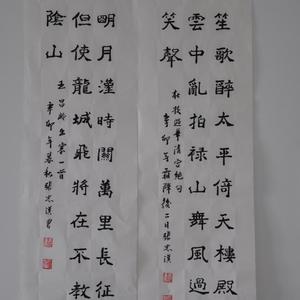 笙歌醉太平倚天樓殿
雲中亂拍禄山舞風過
笑聲
杜牧過華清宮絕句
辛卯年霜降後二日張
明月漢時關萬里長征
但使龍城飛將在不教
陰山
王昌齡出塞一首
辛卯年暮秋張